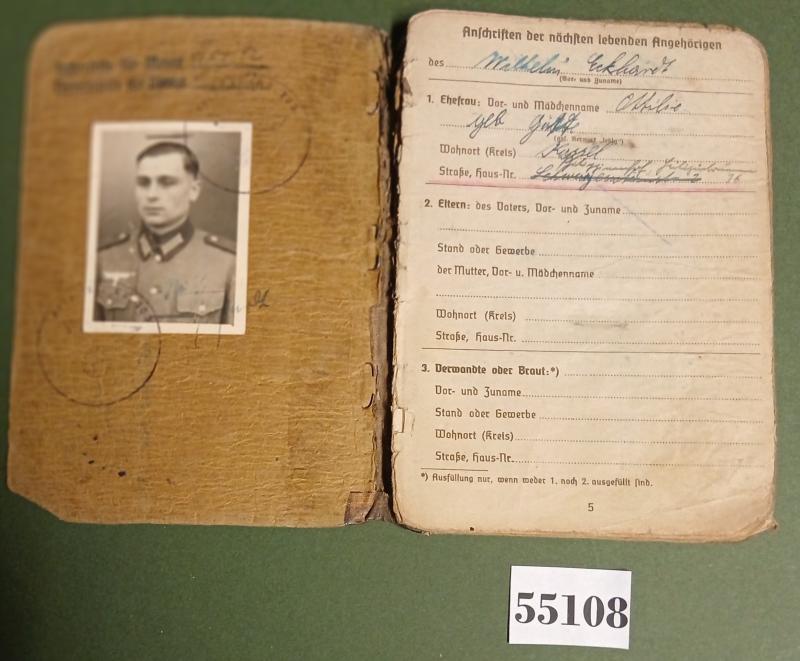 Anschriften der nächsten lebenden Angehörigen
des Wilhelm Eckhardt
(Vor- und Zuname)
1. Ehefrau: Vor- und Mädchenname Ottilie
geb
Wohnort (Kreis) Kassel
Straße, Haus-Nr. 36
2. Eltern: des Vaters, Vor- und Zuname
Stand oder Gewerbe
der Mutter, Vor- u. Mädchenname
Wohnort (Kreis)
Straße, Haus-Nr.
3. Verwandte oder Braut:*)
Vor- und Zuname
Stand oder Gewerbe
Wohnort (Kreis)
Straße, Haus-Nr.
*) Ausfüllung nur, wenn weder 1. noch 2. ausgefüllt sind.
5
55108